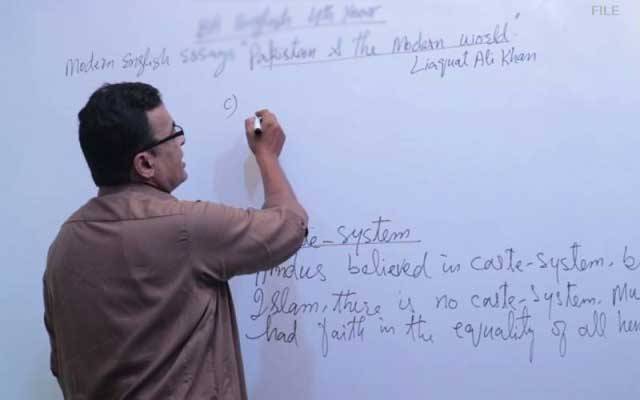 FILE
BA English 4th Year
Modern English Essays "Pakistan & the Modern World"
Liaquat Ali Khan
c)
te-system
Hindus believed in caste-system, b
Islam, there is no caste-system. Mu
had faith in the equality of all